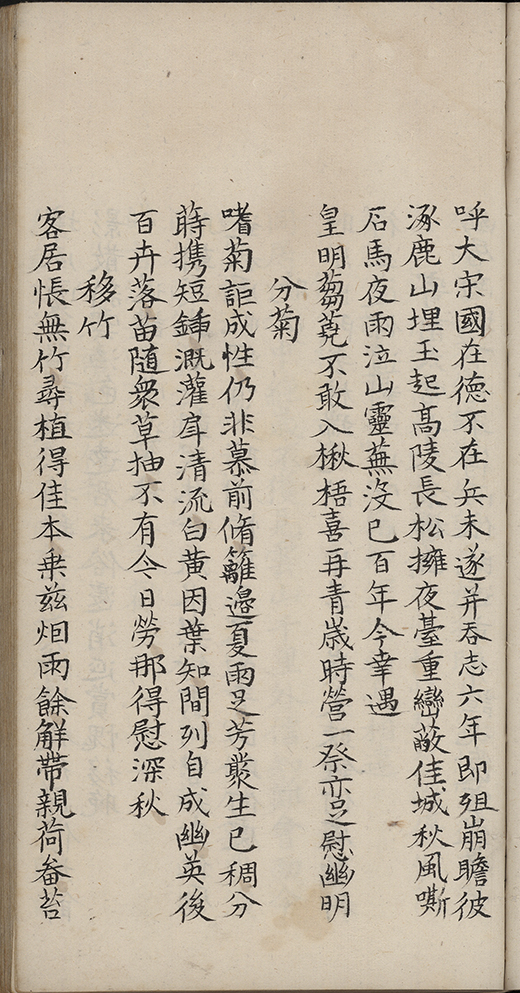 呼大宋國在德不在兵未遂并吞志六年即殂崩瞻彼
涿鹿山埋玉起高陵長松擁夜臺重巒蔽佳城秋風嘶
石馬夜雨泣山靈蕪沒已百年今幸遇
皇明蒭蕘不敢入楸梧喜再青歲時營一祭亦足慰幽明
分菊
嗜菊詎成性仍非慕前脩籬邊夏雨足芳叢生已稠分
蒔携短鍤溉灌戽清流白黄因葉知間列自成幽英後
百卉落苗随衆草抽不有今日勞那得慰深秋
移竹
客居悵無竹尋植得佳本乗兹烟雨餘解帶親荷畚苔